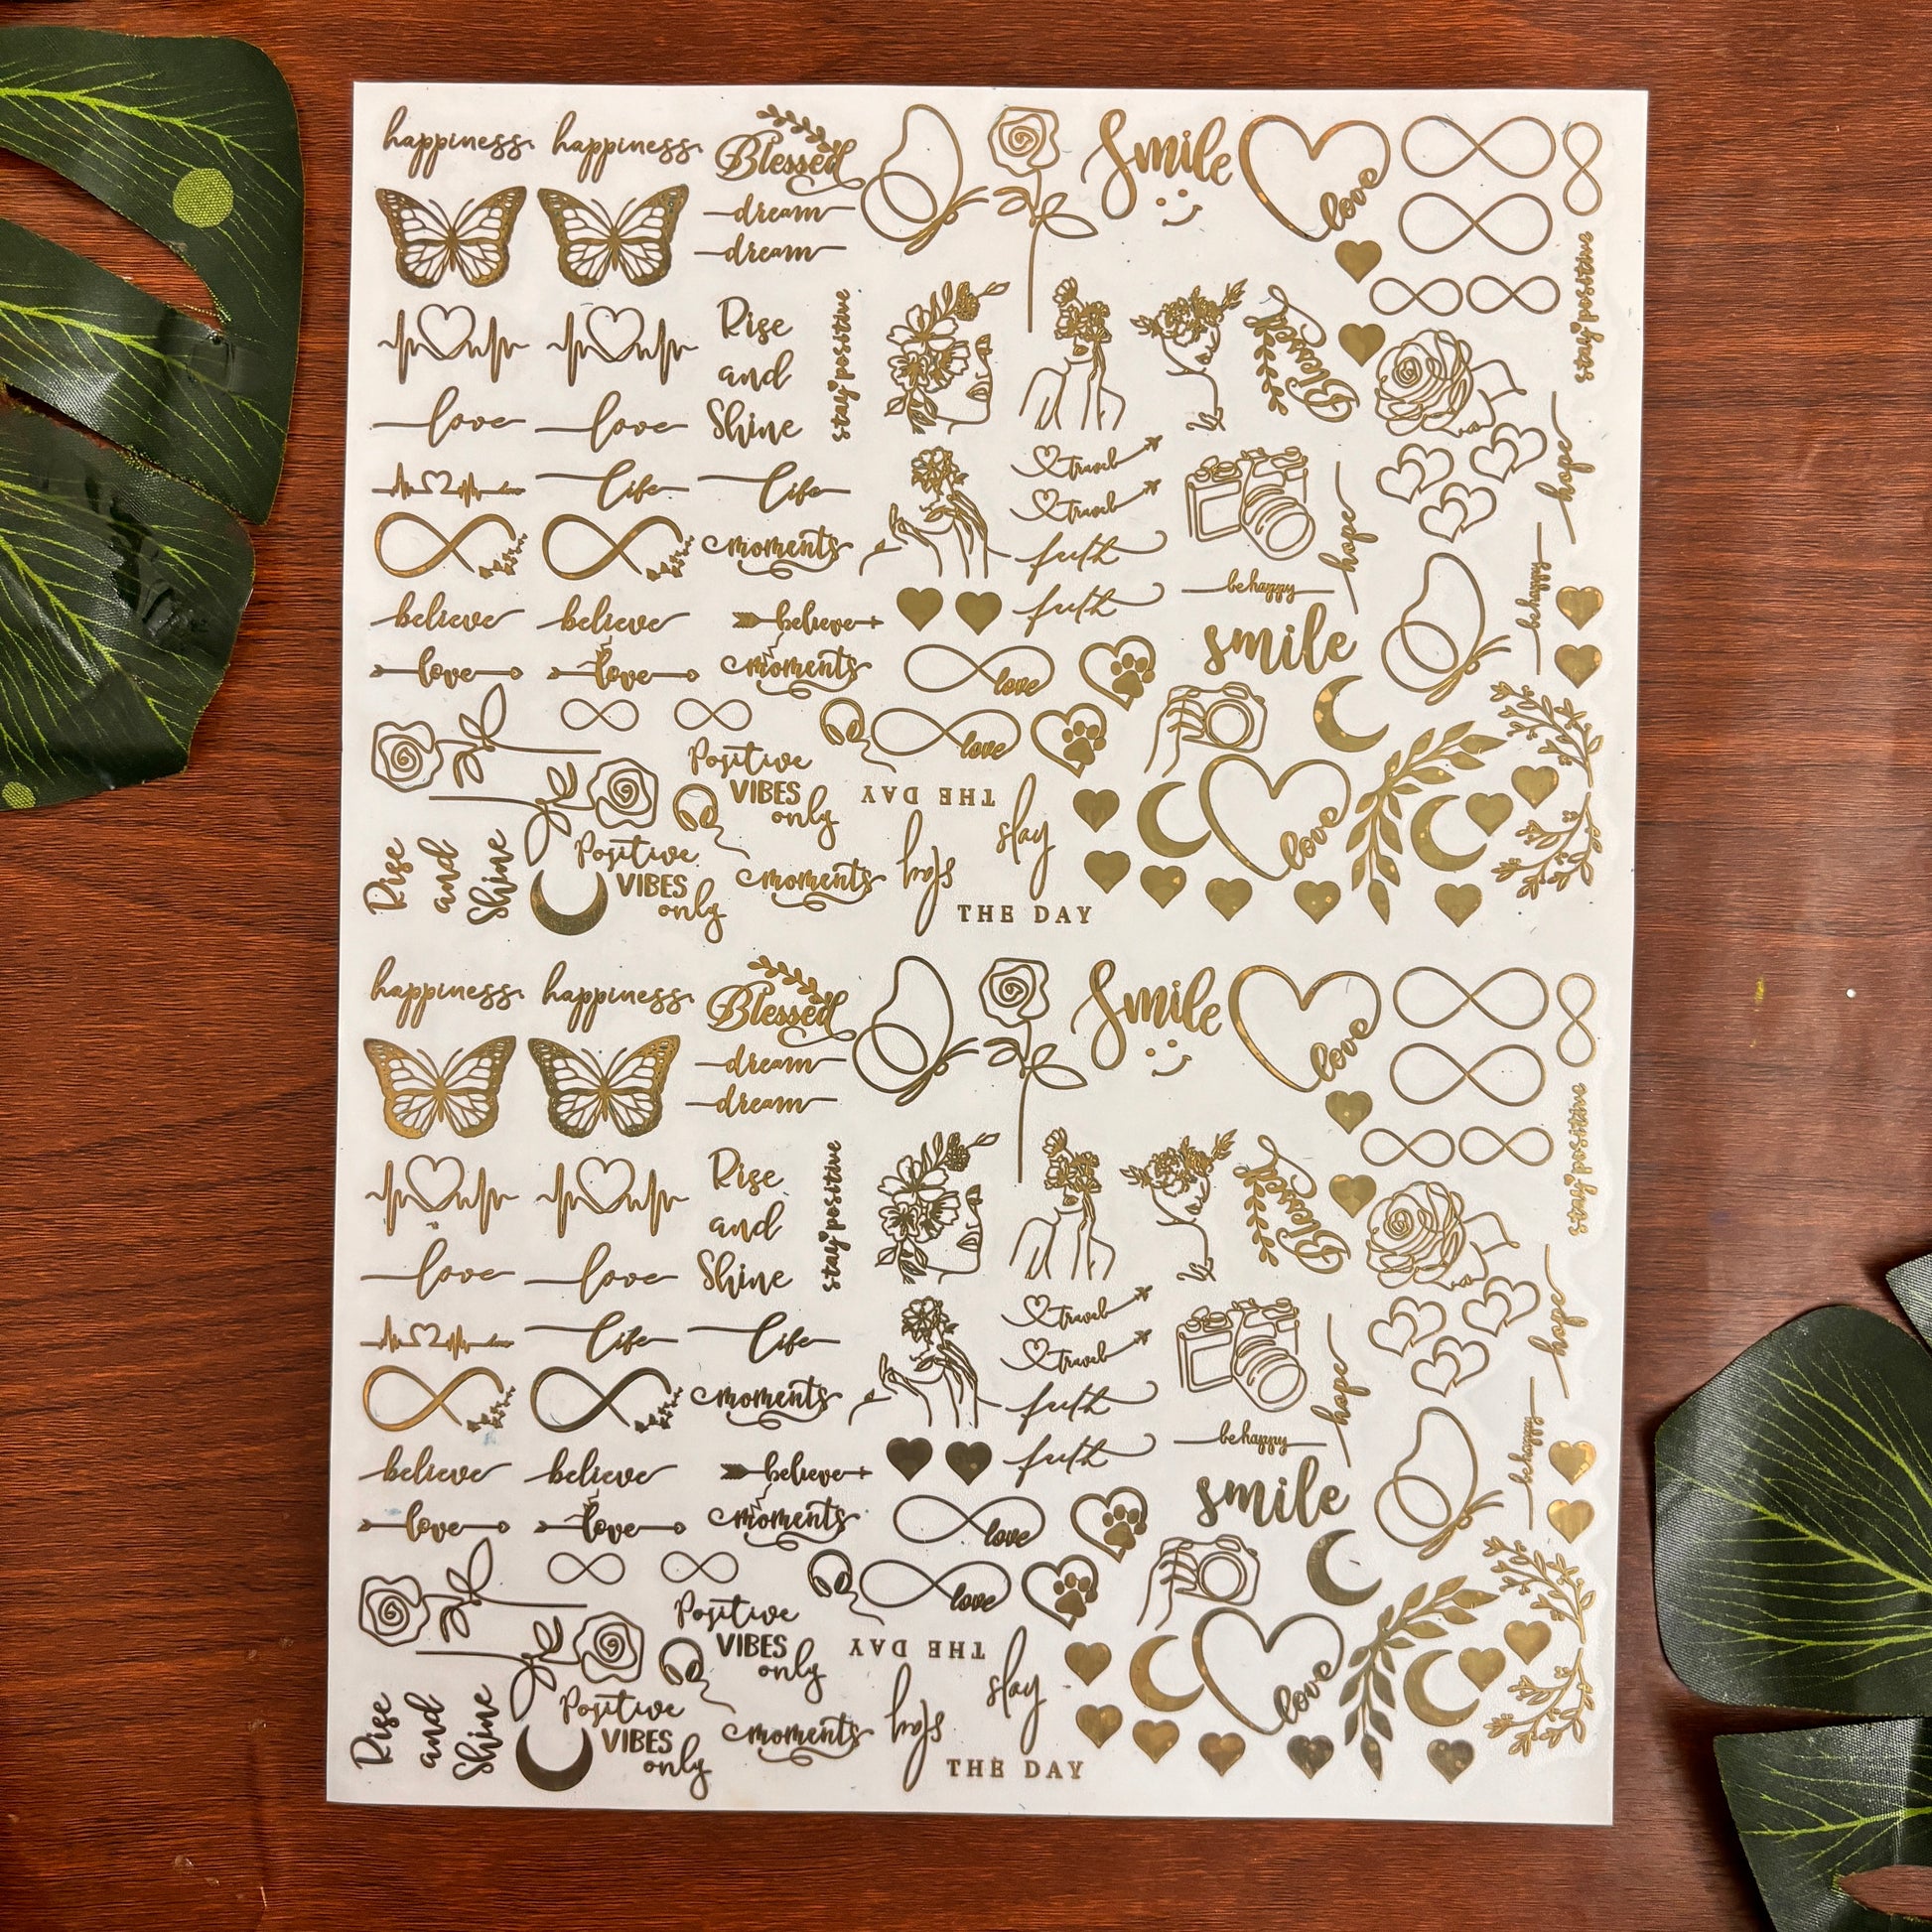 happiness happiness Blessed Smile love
dream
dream
stay positive
Rise
and
Shine
stay positive
Blessed
love love
travel
travel
life life
hope
hope
moments
faith
be happy
be happy
believe believe believe
faith
smile
love love moments
love
love
Positive
VIBES
only
THE DAY
slay
love
Rise
and
Shine
Positive
VIBES
only
moments
slay
THE DAY
happiness happiness Blessed Smile love
dream
dream
stay positive
Rise
and
Shine
stay positive
Blessed
love love
travel
travel
life life
hope
hope
moments
faith
be happy
be happy
believe believe believe
faith
smile
love love moments
love
love
Positive
VIBES
only
THE DAY
slay
love
Rise
and
Shine
Positive
VIBES
only
moments
slay
THE DAY